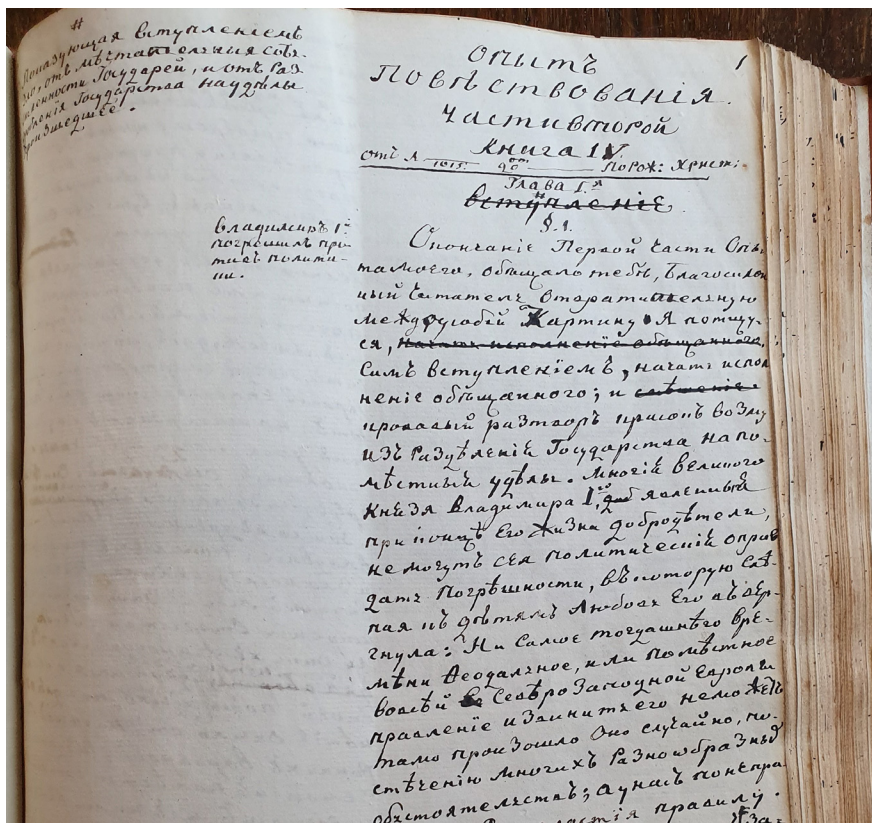 #
Показующая вступленіемъ
отъ мѣстительныя собъ-
Государей, и отъ раз
Государства на удѣлы
произшедшее.
1
Опытъ
Повѣствованія.
Части второй
Книга IV.
отъ Л 1015. до по рож: Христ:
Глава I.я
вступленіе
§. 1.
Владимиръ 1й
погрешилъ про
тивъ полити-
ки.
Окончаніе Первой Части Опы
та моего, обѣщало тебѣ, Благосклон
ный Читатель отвратительную
междоусобій Картину. Я потщу-
ся, начать исполненіе обѣщаннаго.
Симъ вступленіемъ, начать испол
неніе обѣщаннаго; и
кровавый разтворъ красокъ возму
изъ раздѣленія Государства на по-
мѣстныи удѣлы. Многія Великого
Князя Владимира I.го явленныя
при концѣ Его жизни добродѣтели,
не могутъ сея политическія оправ
дать Погрѣшности, въ которую слѣ-
пая къ дѣтямъ Любовь Его ввѣр-
гнула: Ни самое тогдашнѣго вре-
мѣни Ѳеодальное, или помѣстное
во всѣй Сѣвѣрозападной Европы
правленіе извинить его не можетъ
тамо произошло Оно случайно, по
стѣченію многихъ разнообразныхъ
обстоятельствъ; а у насъ
правилу.